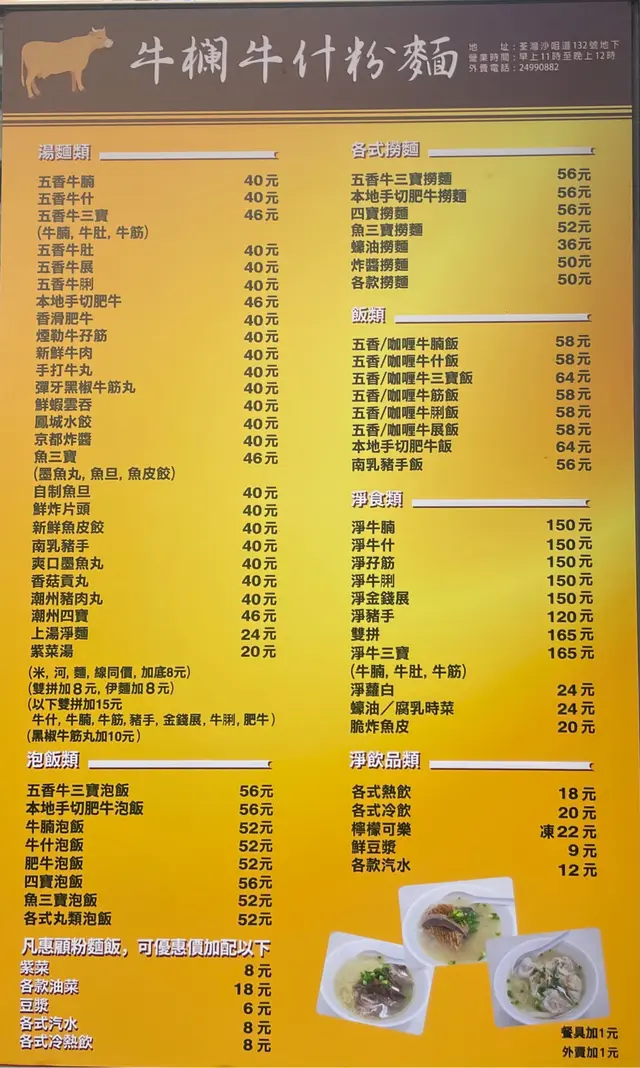 牛欄牛什粉麵
地　　址：荃灣沙咀道132號地下
營業時間：早上11時至晚上12時
外賣電話：24990882
湯麵類
五香牛腩 40元
五香牛什 40元
五香牛三寶 46元
(牛腩, 牛肚, 牛筋)
五香牛肚 40元
五香牛展 40元
五香牛脷 40元
本地手切肥牛 46元
香滑肥牛 40元
煙勒牛孖筋 40元
新鮮牛肉 40元
手打牛丸 40元
彈牙黑椒牛筋丸 40元
鮮蝦雲吞 40元
鳳城水餃 40元
京都炸醬 40元
魚三寶 46元
(墨魚丸, 魚旦, 魚皮餃)
自制魚旦 40元
鮮炸片頭 40元
新鮮魚皮餃 40元
南乳豬手 40元
爽口墨魚丸 40元
香菇貢丸 40元
潮州豬肉丸 40元
潮州四寶 46元
上湯淨麵 24元
紫菜湯 20元
(米, 河, 麵, 線同價, 加底8元)
(雙拼加8元, 伊麵加8元)
(以下雙拼加15元
牛什, 牛腩, 牛筋, 豬手, 金錢展, 牛脷, 肥牛)
(黑椒牛筋丸加10元)
泡飯類
五香牛三寶泡飯 56元
本地手切肥牛泡飯 56元
牛腩泡飯 52元
牛什泡飯 52元
肥牛泡飯 52元
四寶泡飯 56元
魚三寶泡飯 52元
各式丸類泡飯 52元
凡惠顧粉麵飯，可優惠價加配以下
紫菜 8元
各款油菜 18元
豆漿 6元
各式汽水 8元
各式冷熱飲 8元
各式撈麵
五香牛三寶撈麵 56元
本地手切肥牛撈麵 56元
四寶撈麵 56元
魚三寶撈麵 52元
蠔油撈麵 36元
炸醬撈麵 50元
各款撈麵 50元
飯類
五香/咖喱牛腩飯 58元
五香/咖喱牛什飯 58元
五香/咖喱牛三寶飯 64元
五香/咖喱牛筋飯 58元
五香/咖喱牛脷飯 58元
五香/咖喱牛展飯 58元
本地手切肥牛飯 64元
南乳豬手飯 56元
淨食類
淨牛腩 150元
淨牛什 150元
淨孖筋 150元
淨牛脷 150元
淨金錢展 150元
淨豬手 120元
雙拼 165元
淨牛三寶 165元
(牛腩, 牛肚, 牛筋)
淨蘿白 24元
蠔油／腐乳時菜 24元
脆炸魚皮 20元
淨飲品類
各式熱飲 18元
各式冷飲 20元
檸檬可樂 凍22元
鮮豆漿 9元
各款汽水 12元
餐具加1元
外賣加1元